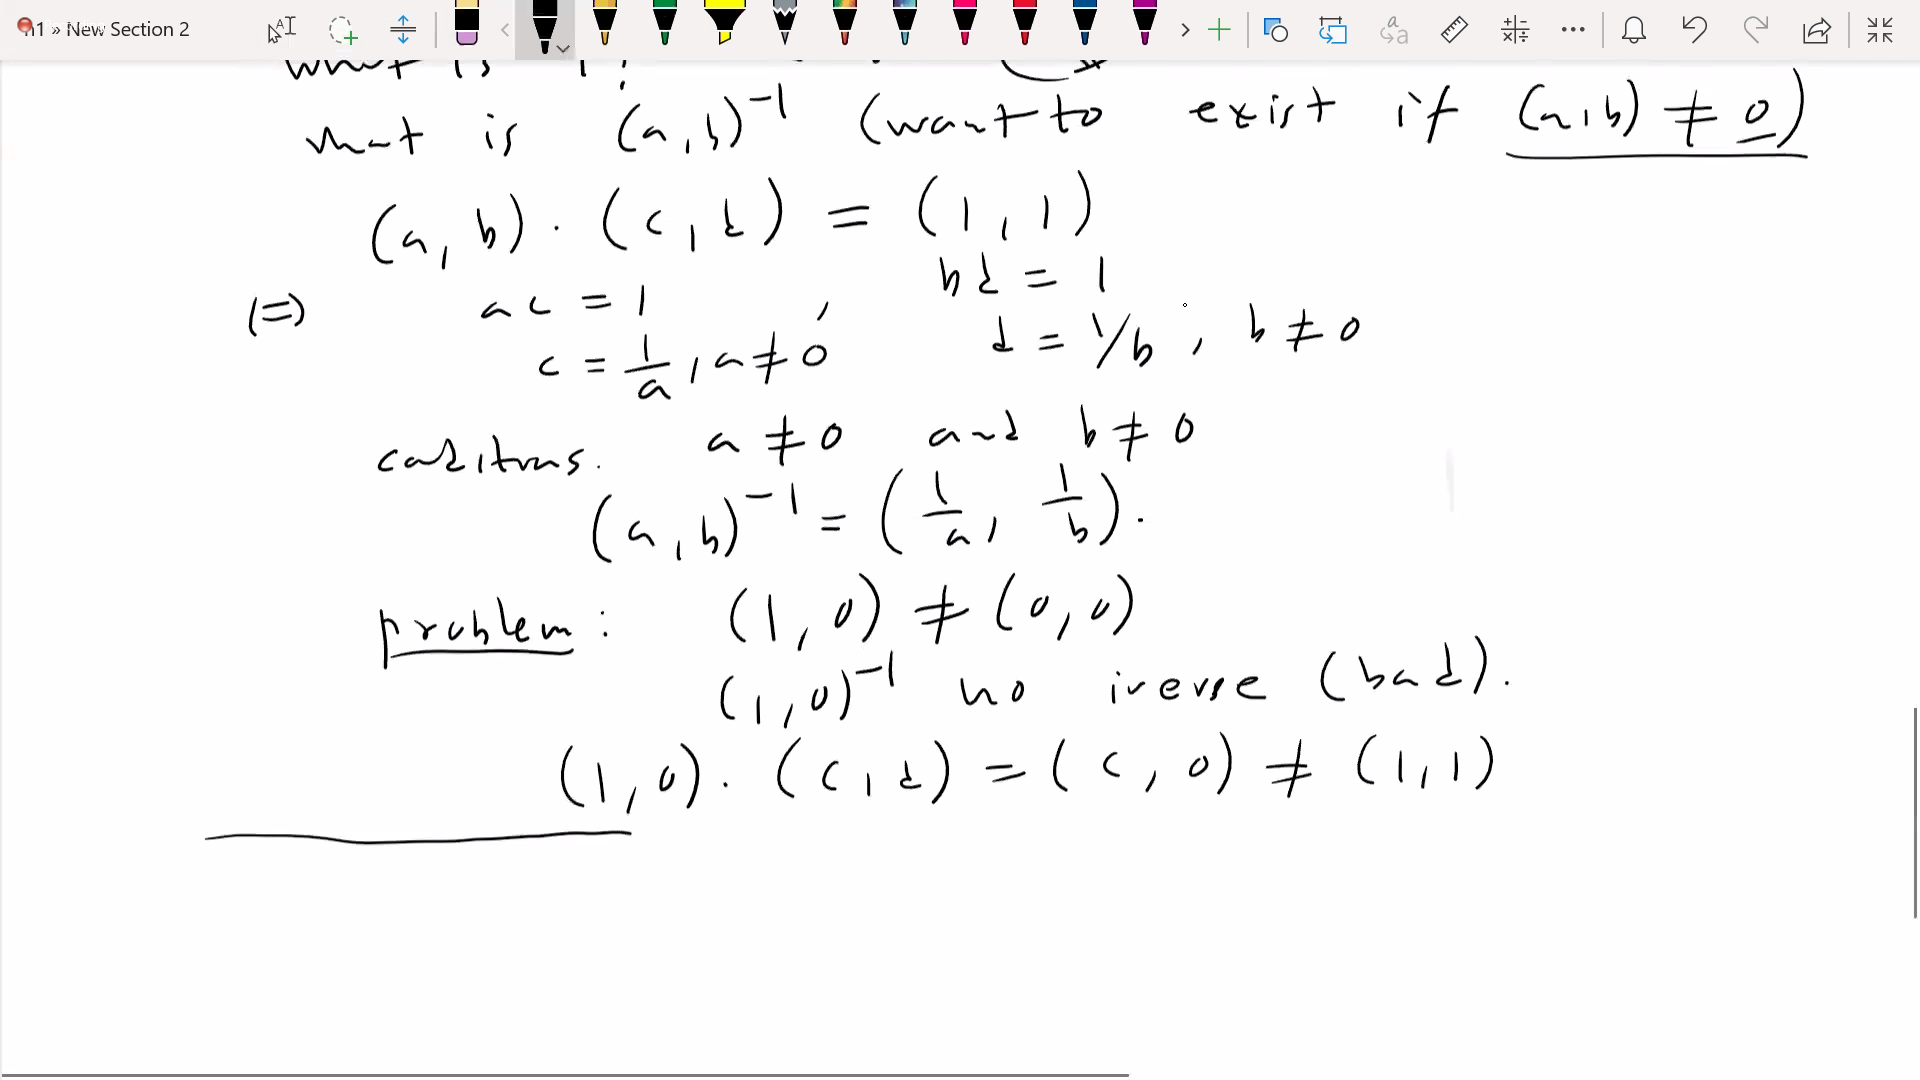 n1 » New Section 2
what is 1?
what is (a,b)⁻¹ (want to exist if (a,b) ≠ 0)
(a,b)·(c,d) = (1,1)
(=) ac = 1, bd = 1
c = 1/a, a ≠ 0 d = 1/b, b ≠ 0
a ≠ 0 and b ≠ 0
(a,b)⁻¹ = (1/a, 1/b).
problem: (1,0) ≠ (0,0)
(1,0)⁻¹ no iverse (bad).
(1,0)·(c,d) = (c,0) ≠ (1,1)